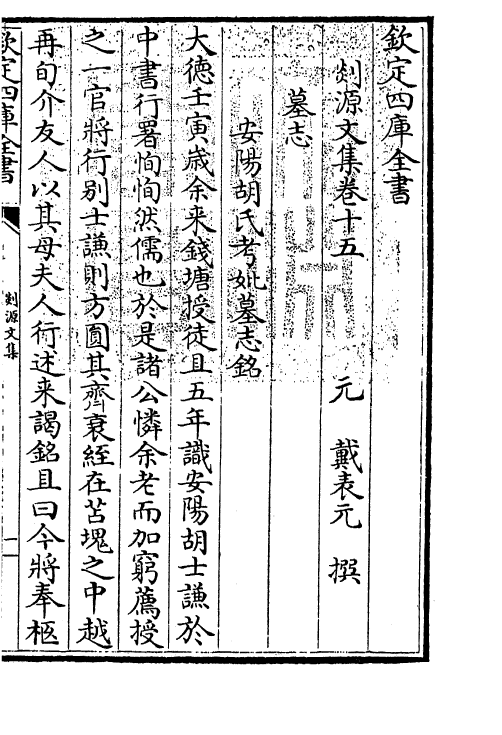 欽定四庫全書
剡源文集卷十五 元 戴表元 撰
墓志
安陽胡氏考妣墓志銘
大德壬寅歳余来錢塘授徒且五年識安陽胡士謙於
中書行署恂恂然儒也於是諸公憐余老而加窮薦授
之一官將行别士謙則方圓其齊衰絰在苫塊之中越
再旬介友人以其母夫人行述来謁銘且曰今將奉柩
欽定四庫全書
剡源文集
一